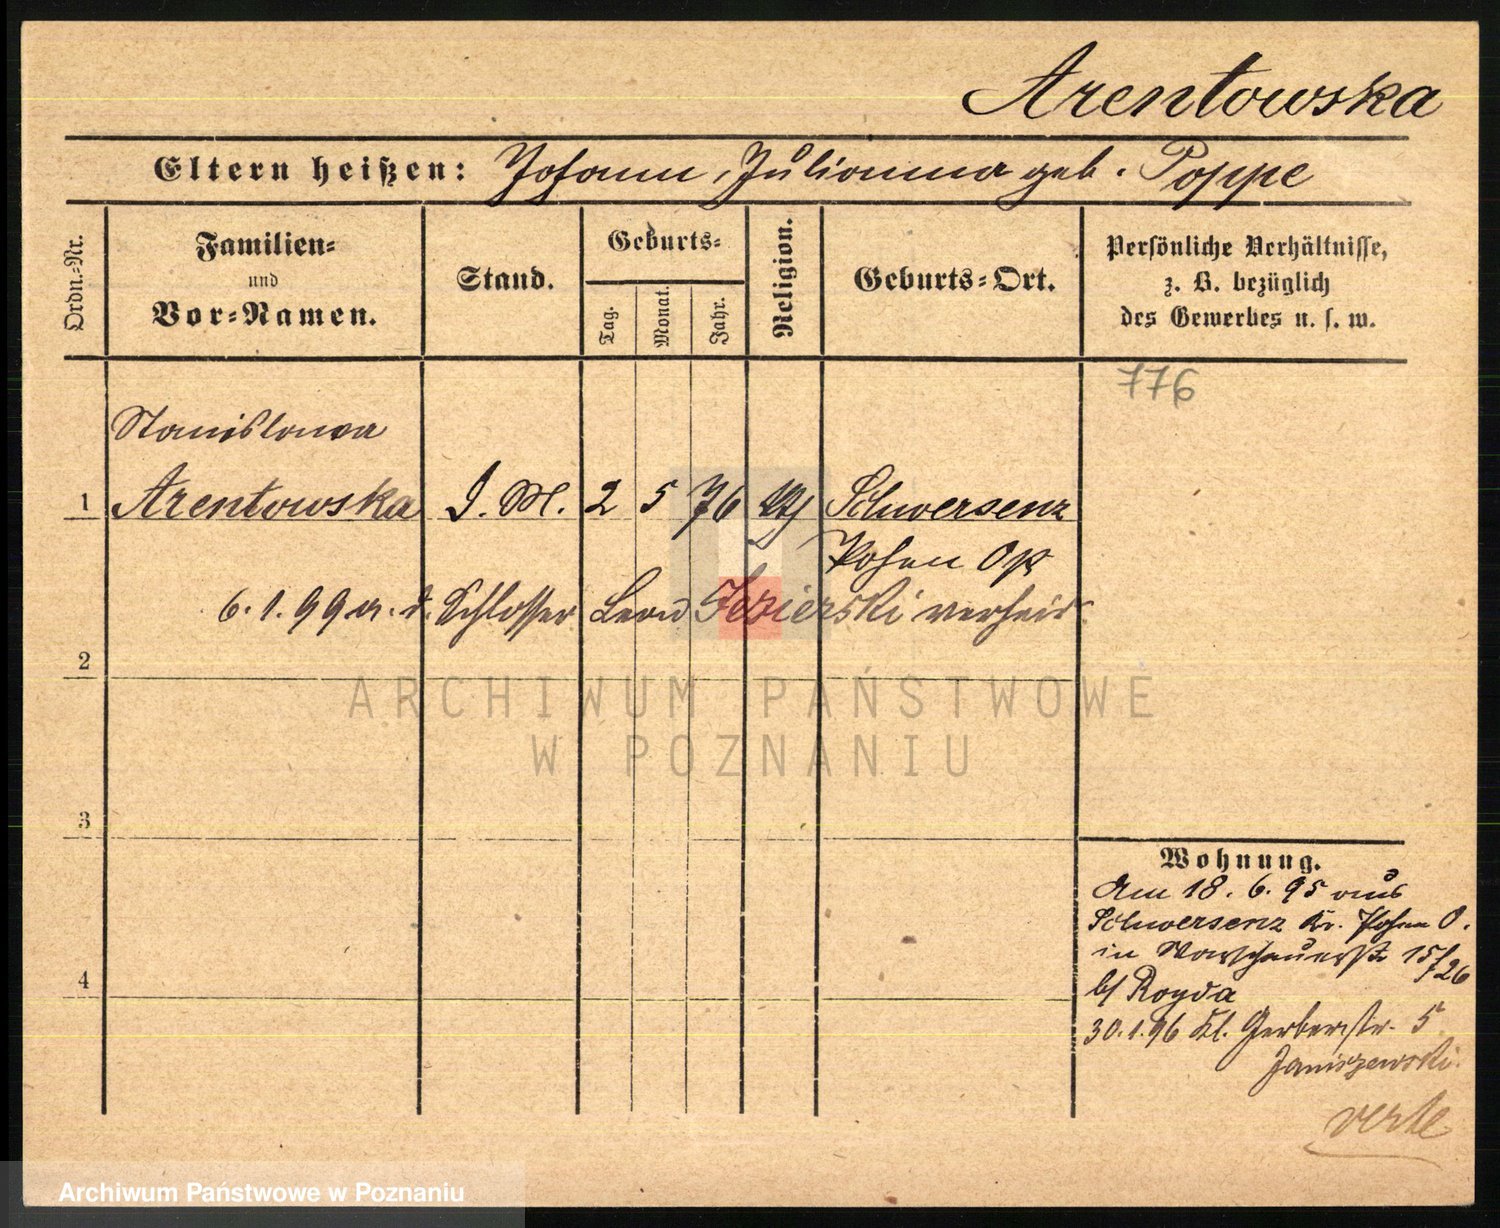 Arentowska
Eltern heißen: Johann, Julianna geb. Poppe
Ordn.-Nr.
Familien-
und
Vor-Namen.
Stand.
Geburts-
Tag.
Monat.
Jahr.
Religion.
Geburts-Ort.
Persönliche Verhältnisse,
z. B. bezüglich
des Gewerbes u. s. w.
776
Stanislawa
1 Arentowska D. M. 2 5 76 Schwersenz
Posen Ost
6.1.99 a. d. Schlosser Leon Jezierski verheir.
2
ARCHIWUM PAŃSTWOWE
W POZNANIU
3
4
Wohnung.
Am 18.6.95 aus
Schwersenz Kr. Posen O.
in Warschauerstr. 15/26
b/ Rogda
30.1.96 Kl. Gerberstr. 5
Janiszewski.
verte
Archiwum Państwowe w Poznaniu